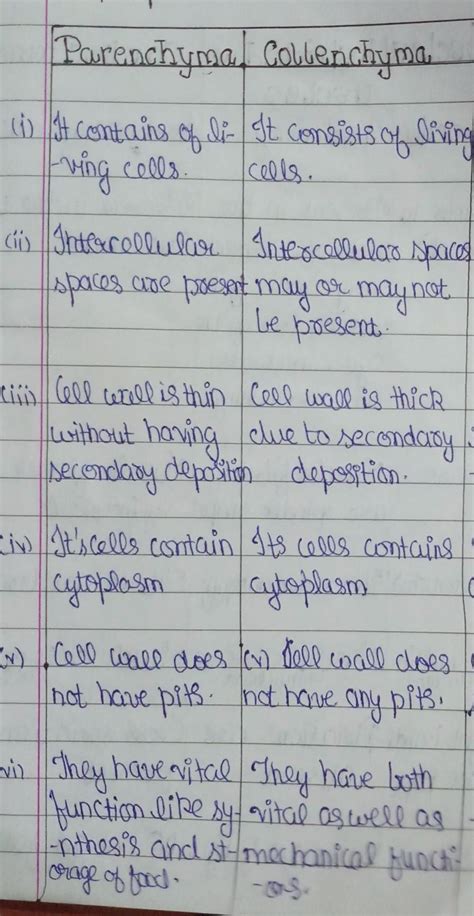 Parenchyma Collenchyma
(i) It contains of li- It consists of living
-ving cells. cells.
(ii) Intercellular Intercellular spaces
spaces are present may or may not
be present.
(iii) Cell wall is thin Cell wall is thick
without having due to secondary
secondary deposition deposition.
(iv) It's cells contain Its cells contains
cytoplasm cytoplasm
(v) Cell wall does (v) Cell wall does
not have pits. not have any pits.
vi) They have vital They have both
function like sy- vital as well as
-nthesis and st- mechanical functi-
orage of food. -ons.